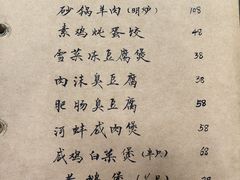 砂锅羊肉(明炉) 108
素鸡炖蛋饺 48
雪菜冻豆腐煲 38
肉沫臭豆腐 38
肥肠臭豆腐 58
河蚌咸肉煲 58
咸鸡白菜煲(半只) 68